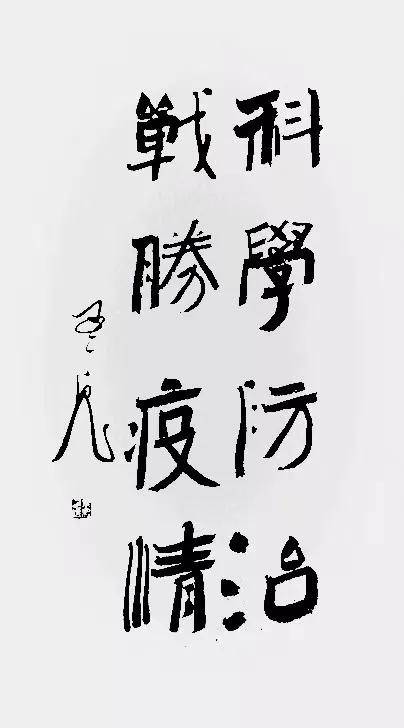 科學防治
戰勝疫情